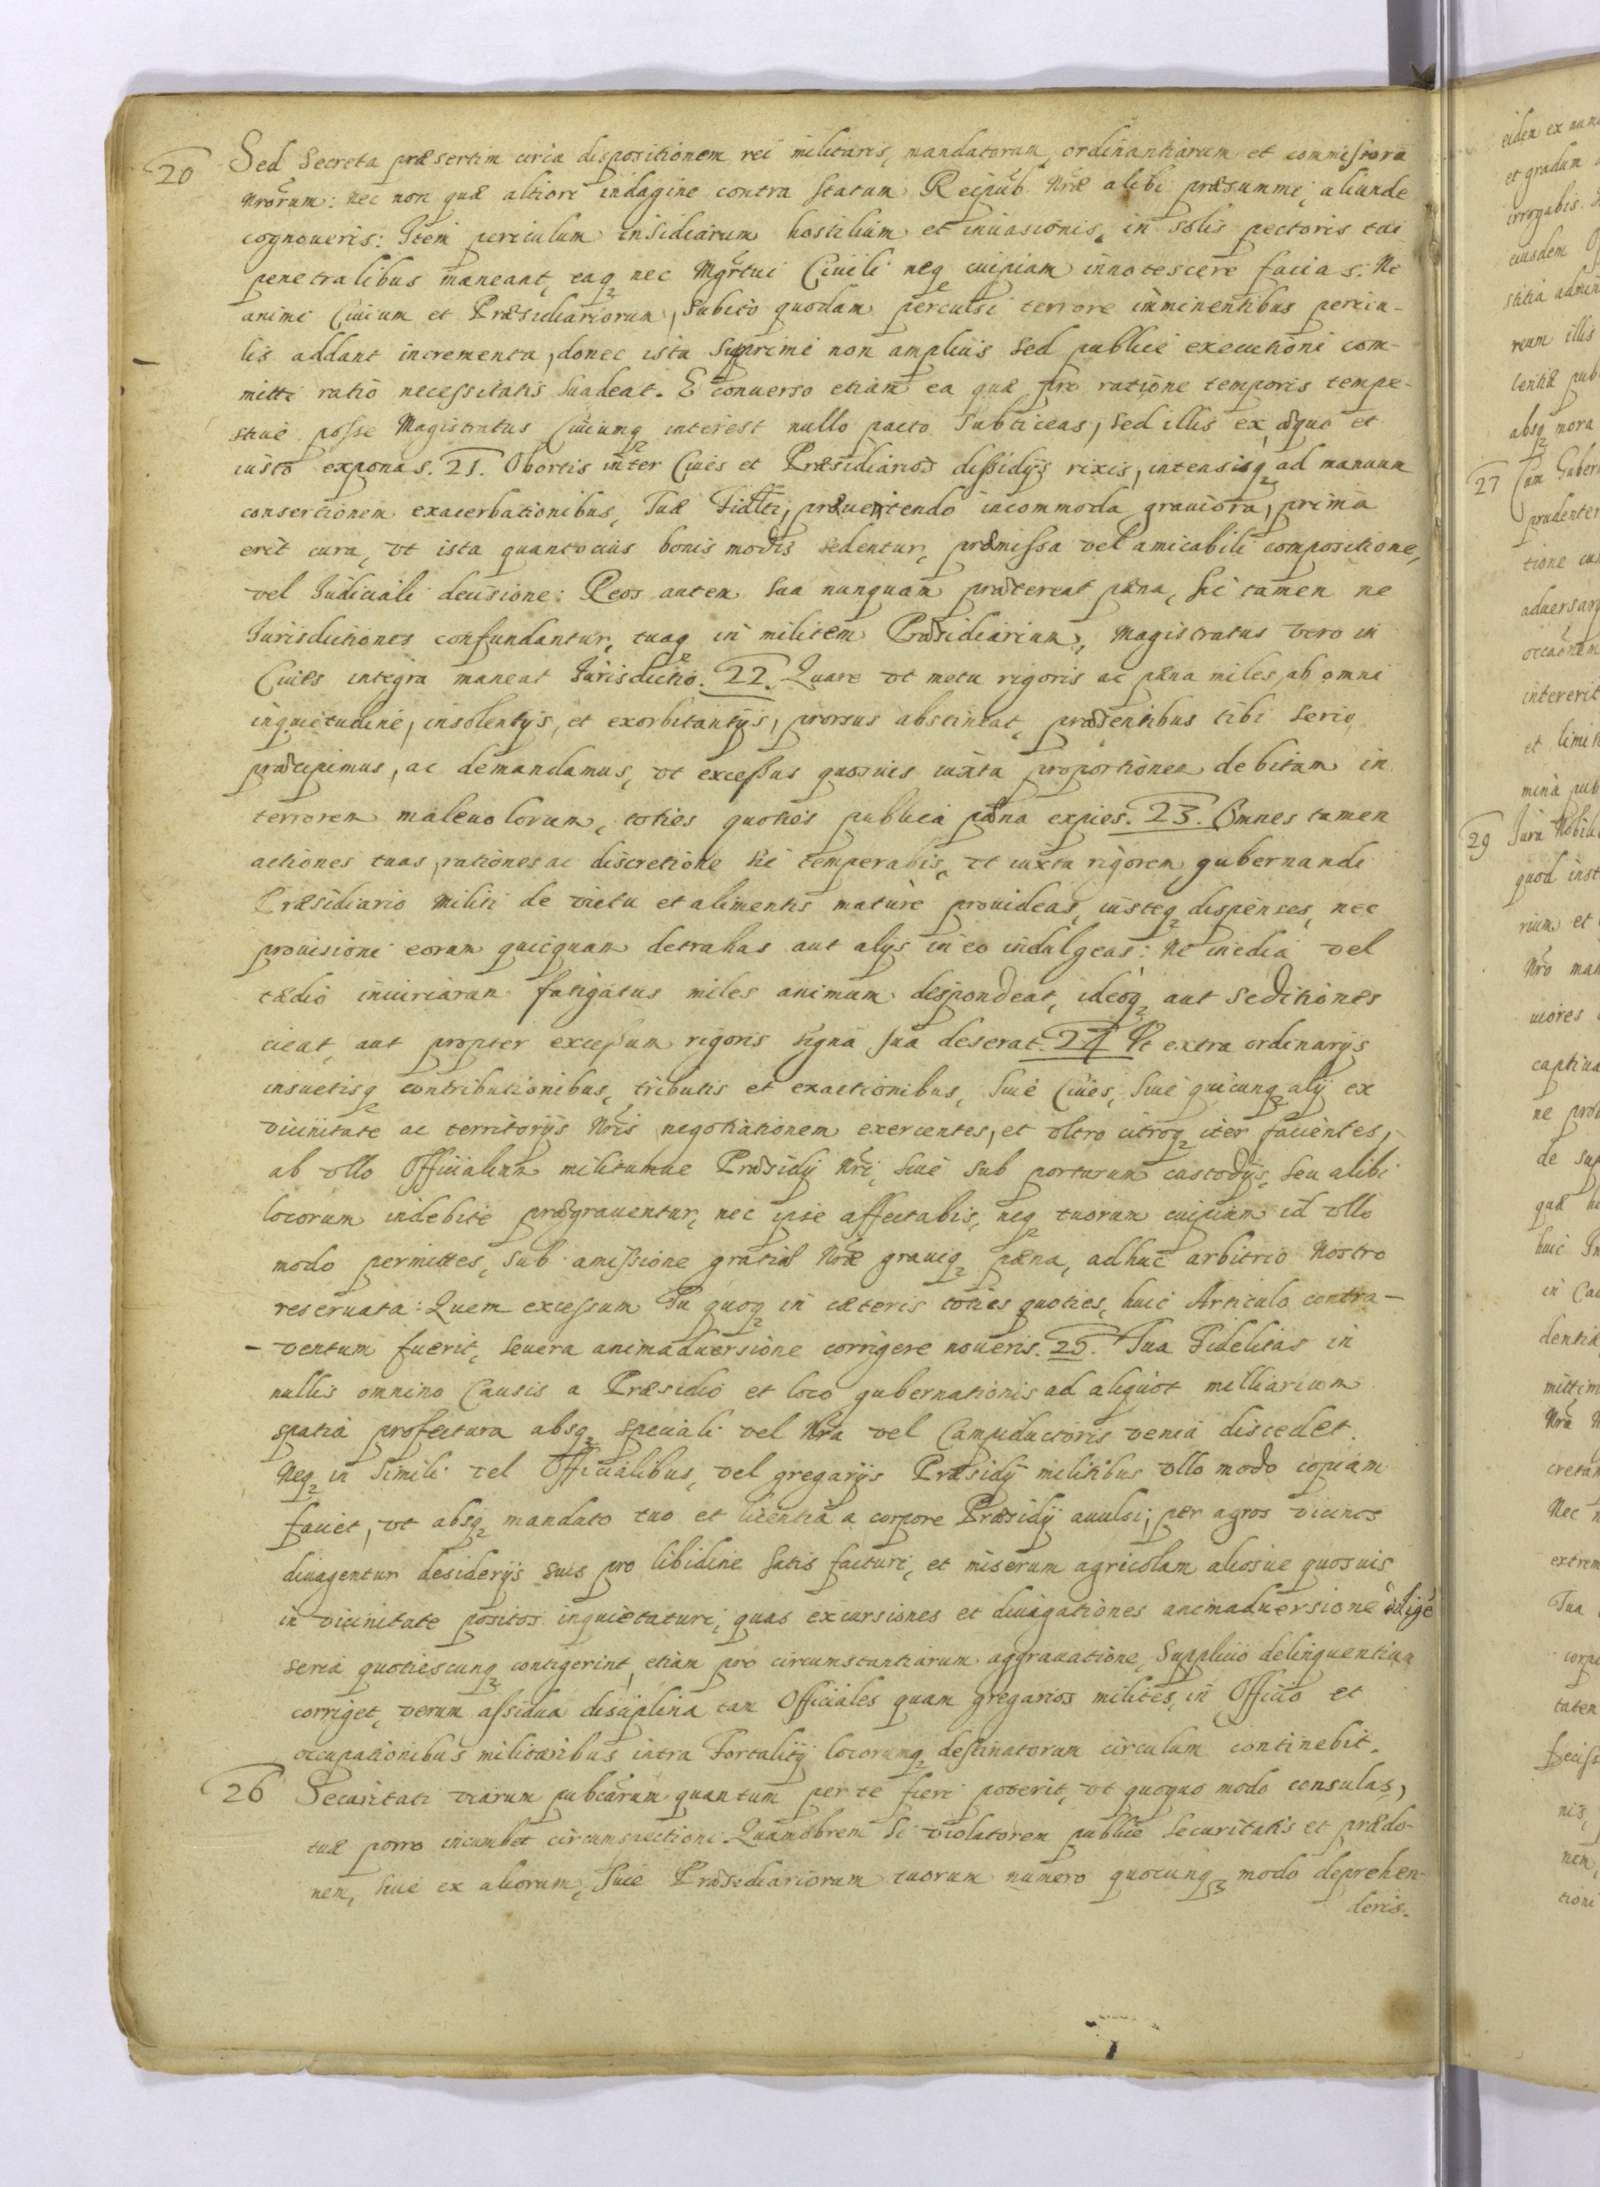 20 Sed Secreta præsertim circa dispositionem rei militaris, mandatorum, ordinantiarum et commissorū
Nrorum: Nec non quæ altiori indagine contra statum Reipub. Nræ alibi præsummi, aliunde
cognoveris: Item periculum insidiarum hostilium et invasionis, in solis pectoris tui
penetralibus maneant, eaq nec Mgrtui Civili neq cuipiam innotescere facias: Ne
animi Civium et Præsidiariorum, Subito quodam perculsi terrore imminentibus pericu-
lis addant incrementa, donec ista Supprimi non amplius sed publicè executioni com-
mitti ratio necessitatis Suadeat. E converso etiam ea quæ pro ratione temporis tempe-
stivè posse Magistratus Civiumq interest nullo pacto Subticeas, Sed illis ex æquo et
iusto exponas. 21. Obortis inter Cives et Præsidiarios dissidijs rixis, intensisq ad manuum
consertionem exacerbationibus, Tuæ Fidlti, præveniendo incommoda graviora, prima
erit cura, vt ista quantocius bonis modis sedentur, præmissa vel amicabili compositione,
vel Judiciali decisione: Reos autem sua nunquam prætereat pæna, sic tamen ne
Jurisdictiones confundantur, tuaq in militem Præsidiarium, Magistratus vero in
Cives integra maneat Jurisdictio. 22. Quare vt metu rigoris ac pæna miles ab omni
inquietudine, insolentijs, et exorbitantijs, prorsus abstineat, præsentibus tibi serio
præcipimus, ac demandamus, vt excessus quosvis iuxta proportionem debitam in
terrorem malevolorum, toties quoties publica pæna expies. 23. Omnes tamen
actiones tuas, rationes ac discretione sic temperabis, vt iuxta rigorem gubernandi
Præsidiario Militi de victu et alimentis maturè provideas, iusteq dispenses, nec
provisioni eorum quicquam detrahas aut alijs in eo indulgeas: Ne inedia vel
tædio iniuriarum fatigatus miles animum dispondeat, ideoq aut seditiones
cieat, aut propter excessum rigoris signa sua deserat. 24 Vt extra ordinarijs
insuetisq contributionibus, tributis et exactionibus, sive Cives, sive quicunq alij ex
vicinitate ac territorijs Nris negotiationem exercentes, et vltro citroq iter facientes,
ab vllo Officialium militumve Præsidij Nri, sive sub portarum custodijs, seu alibi
locorum indebitè prægraventur, nec ipse affectabis, neq tuorum cuipiam id vllo
modo permittes, sub amissione gratiæ Nræ graviq pæna, adhuc arbitrio Nostro
reservata: Quem excessum Tu quoq in cæteris toties quoties, huic Articulo contra-
- ventum fuerit, severa animadversione corrigere noveris. 25. Tua Fidelitas in
nullis omnino Causis a Præsidio et loco gubernationis ad aliquot milliarium
spatia profectura absq speciali vel Nra vel Campiductoris venia discedet.
Neq in simili vel Officialibus, vel gregarijs Præsidij militibus vllo modo copiam
faciet, vt absq mandato tuo et licentia a corpore Præsidij avulsi, per agros vicinos
divagentur desiderijs suis pro libidine satis facturi, et miserum agricolam aliosve quosvis
in vicinitate positos inquietaturi, quas excursiones et divagationes animadversione
seria quotiescunq contigerint, etiam pro circumstantiarum aggravatione, Supplicio delinquentium
corriget, verum assidua disciplina tam Officiales quam gregarios milites, in Officio et
occupationibus militaribus intra Fortalitij locorumq destinatorum circulum continebit.
26 Securitati viarum pubcarum quantum per te fieri poterit, vt quoquo modo consulas,
tuæ porro incumbet circumspectioni Quamobrem si violatorem publicæ securitatis et prædo-
nem, sive ex aliorum, sive Præsidiariorum tuorum numero quocunq modo deprehen-
deris.
eidem ex
et gradum
irrogabis.
eiusdem
stitia
reum illis
lentiæ pub
absq mora
27 Cum Guber
prudenter
tione
adversarij
intererit
et limi
mina pub
29 Jura Nobili
quod inst
rium et
Nro man
viores
captiva
ne pro
de sup
quæ
huic
in
dentia
mittim
Nra
cretam
Nec
extrem
Tua
corpo
taten
nis,
nem,
tioni